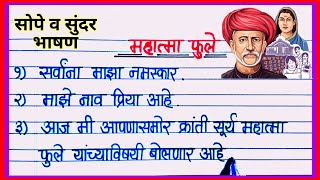 सोपे व सुंदर
भाषण
महात्मा फुले
१) सर्वांना माझा नमस्कार.
२) माझे नाव प्रिया आहे.
३) आज मी आपणासमोर क्रांती सूर्य महात्मा
फुले यांच्याविषयी बोलणार आहे.